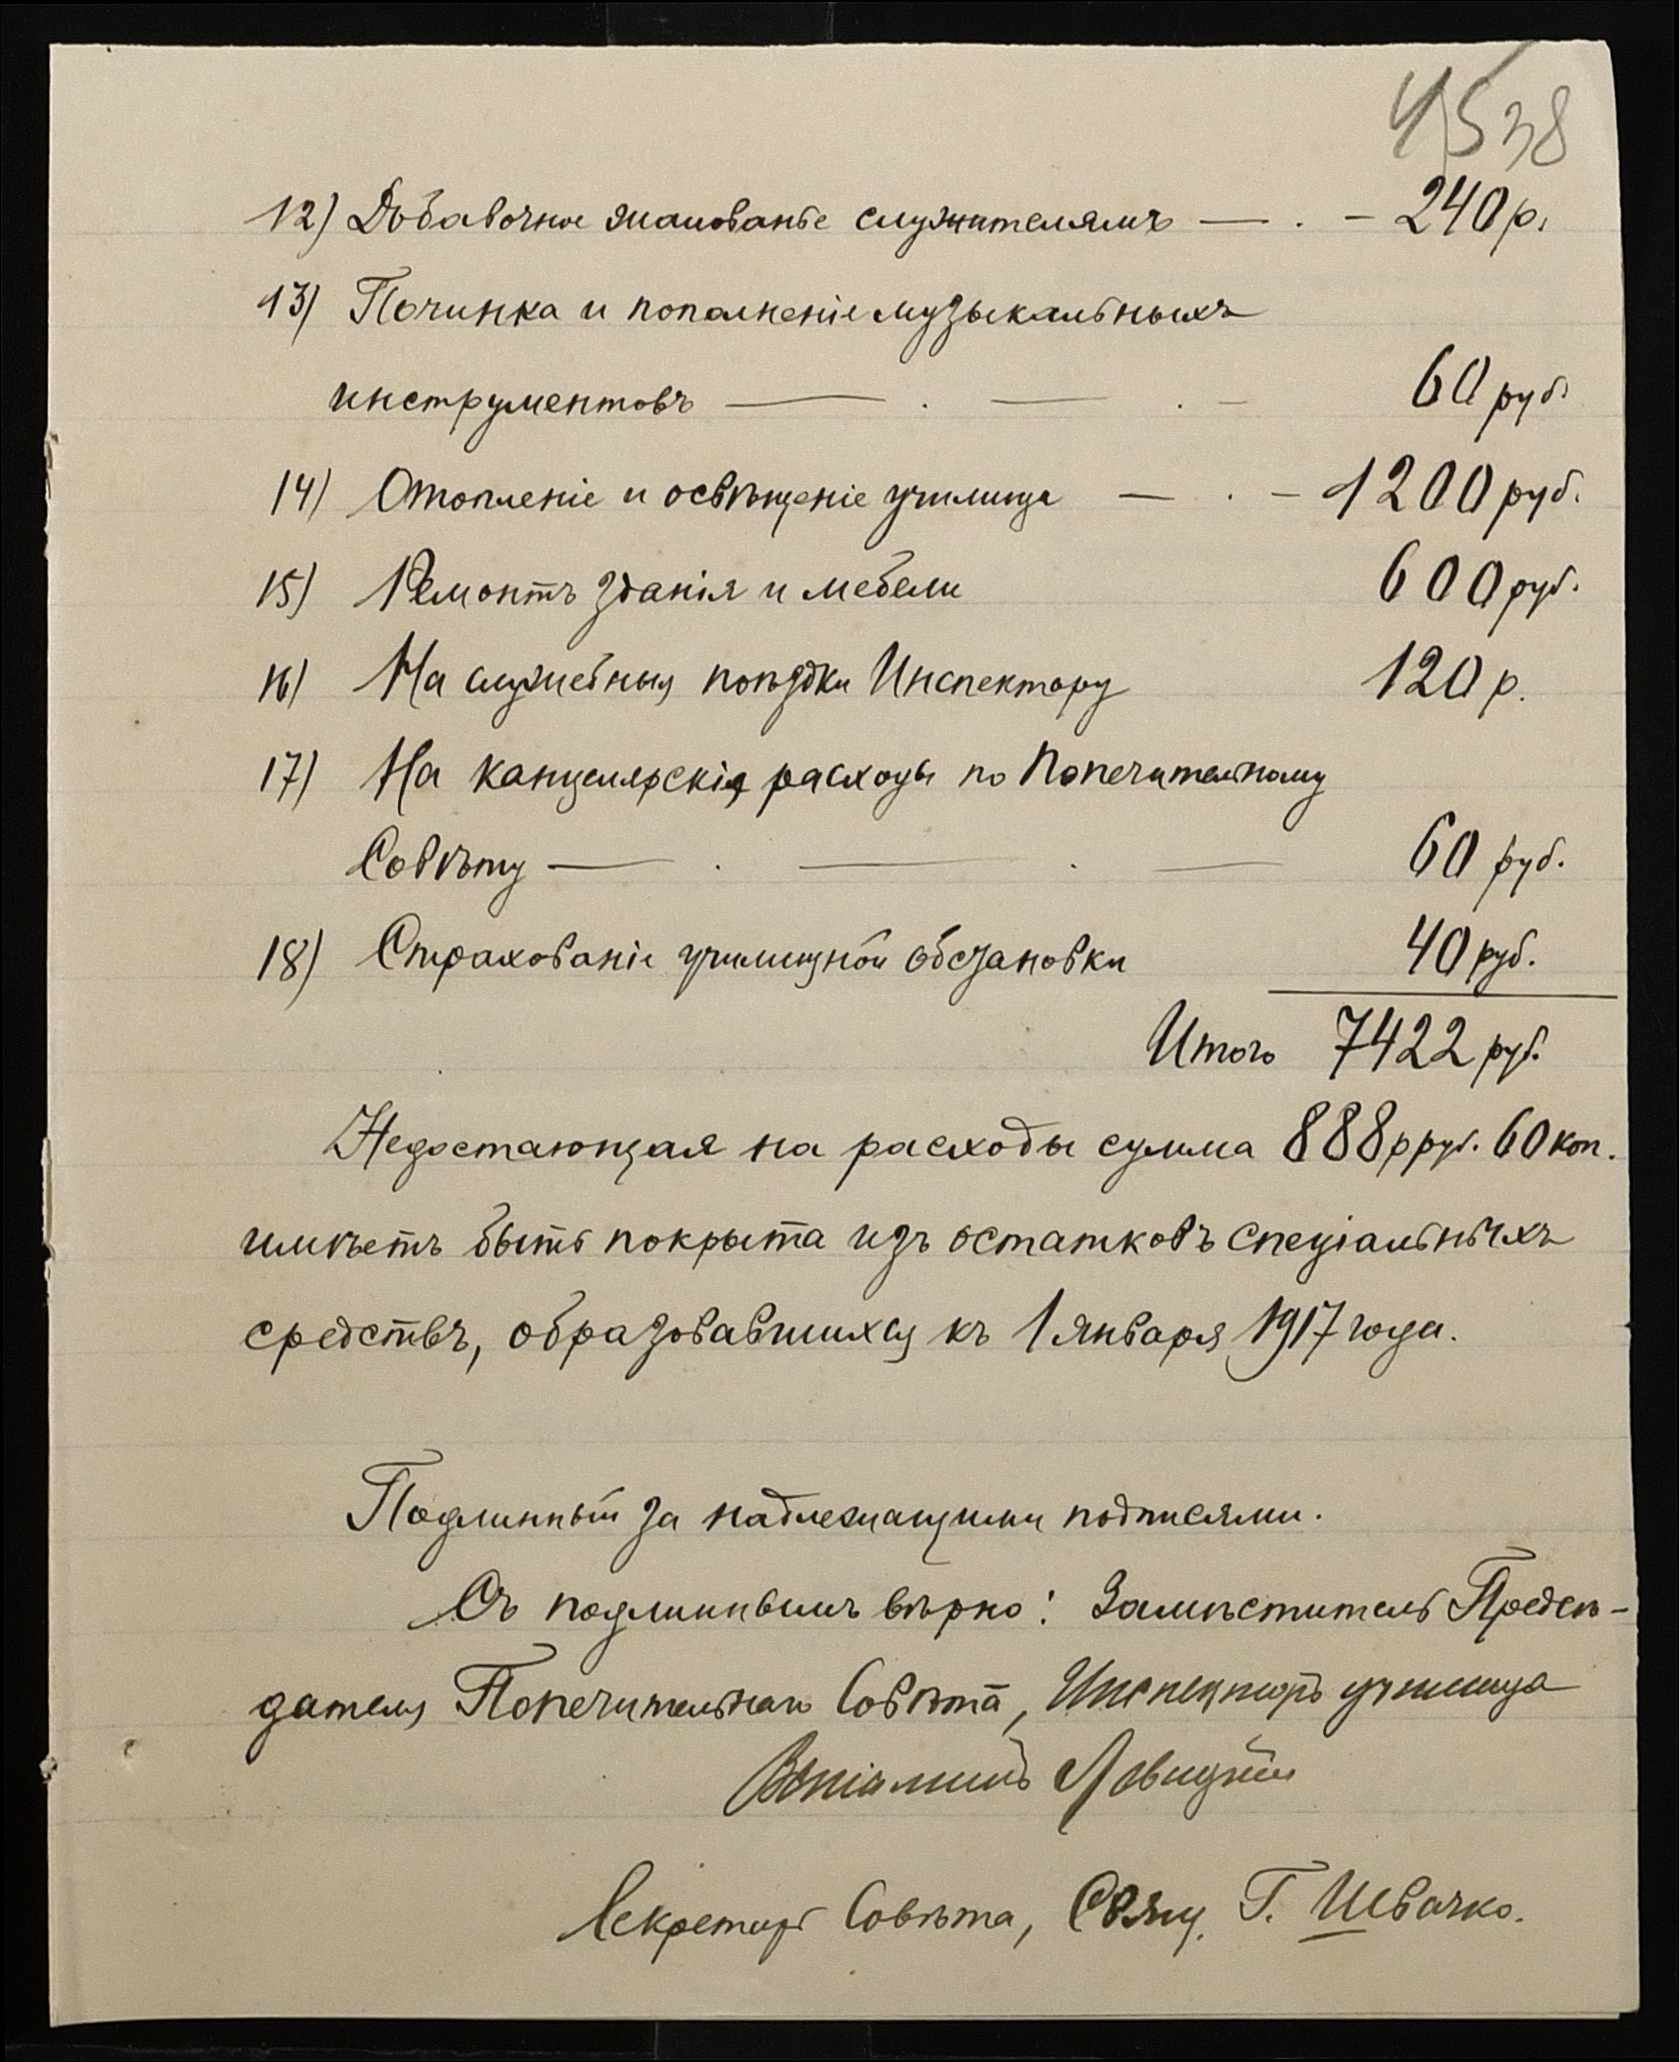 4538
12) Добавочное жалованье служителямъ — . — 240 р.
13) Починка и пополненіе музыкальныхъ
инструментовъ — . — . — 60 руб.
14) Отопленіе и освѣщеніе училища — . — 1200 руб.
15) Ремонтъ зданія и мебели 600 руб.
16) На служебныя поѣздки Инспектору 120 р.
17) На канцелярскія расходы по Попечительному
Совѣту — . — . — 60 руб.
18) Страхованіе училищной обстановки 40 руб.
Итого 7422 руб.
Недостающая на расходы сумма 888 р руб. 60 коп.
имѣетъ быть покрыта изъ остатковъ спеціальныхъ
средствъ, образовавшихся къ 1 января 1917 года.
Подлинный за надлежащими подписями.
Съ подлиннымъ вѣрно: Замѣститель Предсѣ-
дателя Попечительнаго Совѣта, Инспекторъ училища
Веніаминъ Левицкій
Секретарь Совѣта, Свящ. Г. Швачко.